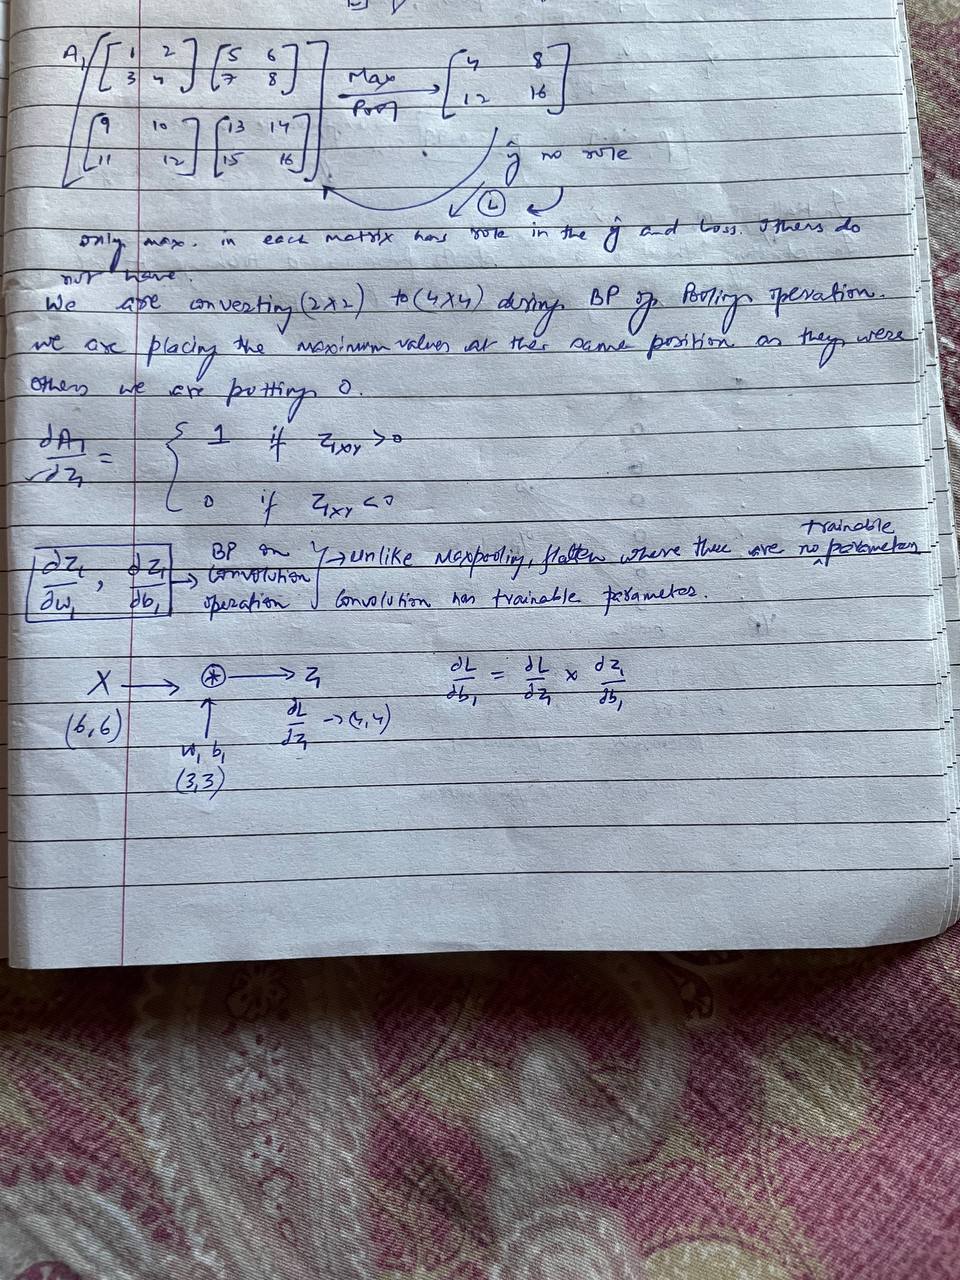 A₁ [ [1 2] [5 6] ] Max [4 8]
[3 4] [7 8] Pool → [12 16]
[9 10] [13 14]
[11 12] [15 16]
ŷ no role
L
only max. in each matrix has role in the ŷ and Loss. Others do
not have.
We are converting (2x2) to (4x4) during BP of Pooling operation.
we are placing the maximum values at the same position as they were
others we are putting 0.
dA₁/dZ₁ = { 1 if Z₁xy > 0
0 if Z₁xy < 0
trainable
∂Z₁/∂w₁, ∂Z₁/∂b₁ → BP on convolution operation } → unlike Maxpooling, flatten where there are no parameters
Convolution has trainable parameter.
X → ⊛ → Z₁ ∂L/∂b₁ = ∂L/∂Z₁ x ∂Z₁/∂b₁
(6,6) ∂L/∂Z₁ → (4,4)
w₁ b₁
(3,3)